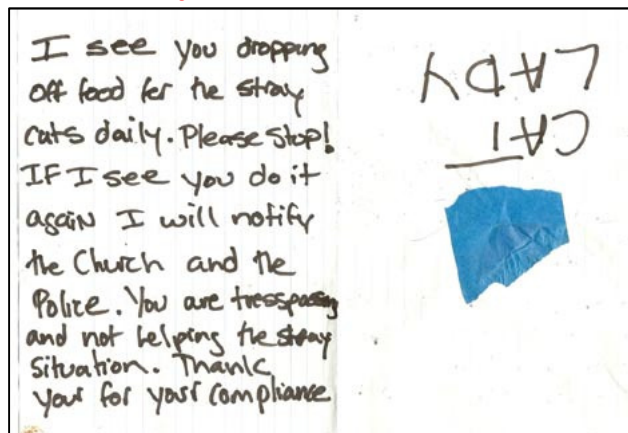 I see you dropping
off food for the stray
cats daily. Please stop!
If I see you do it
again I will notify
the Church and the
Police. You are tresspassing
and not helping the stray
situation. Thank
your for your compliance
CAT
LADY